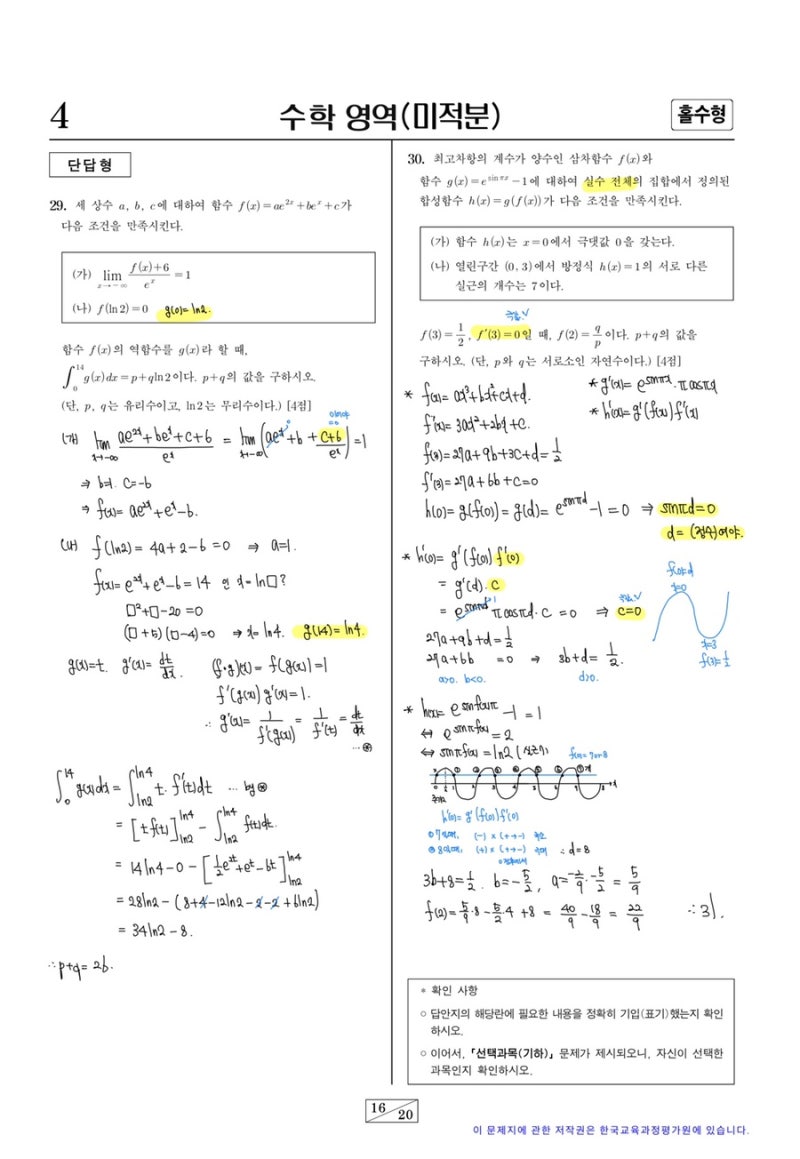 4
수학 영역(미적분)
홀수형
단답형
29. 세 상수 a, b, c에 대하여 함수 f(x)=ae^{2x}+be^x+c가
다음 조건을 만족시킨다.
(가) lim_{x→-∞} (f(x)+6)/e^x = 1
(나) f(ln2)=0 g(0)=ln2.
함수 f(x)의 역함수를 g(x)라 할 때,
∫_0^{14} g(x)dx=p+qln2이다. p+q의 값을 구하시오.
(단, p, q는 유리수이고, ln2는 무리수이다.) [4점]
(가) lim_{x→-∞} (ae^{2x}+be^x+c+6)/e^x = lim_{x→-∞} (ae^x+b+(c+6)/e^x)=1
⇒ b=1. c=-6
⇒ f(x)= ae^{2x}+e^x-6.
(나) f(ln2)= 4a+2-6=0 ⇒ a=1.
f(x)=e^{2x}+e^x-6=14 인 x=ln□?
□²+□-20=0
(□+5)(□-4)=0 ⇒ x=ln4. g(14)=ln4.
g(x)=t. g'(x)= dt/dx. (f∘g)(x)= f(g(x))=1
f'(g(x)) g'(x)=1.
∴ g'(x)= 1/f'(g(x)) = 1/f'(t) = dt/dx
…⊛
∫_0^{14} g(x)dx=∫_{ln2}^{ln4} t·f'(t)dt … by ⊛
= [tf(t)]_{ln2}^{ln4} - ∫_{ln2}^{ln4} f(t)dt.
= 14ln4-0-[½e^{2t}+e^t-6t]_{ln2}^{ln4}
= 28ln2-(8+4-12ln2-2-2+6ln2)
= 34ln2-8.
∴p+q=26.
30. 최고차항의 계수가 양수인 삼차함수 f(x)와
함수 g(x)=e^{sinπx}-1에 대하여 실수 전체의 집합에서 정의된
합성함수 h(x)=g(f(x))가 다음 조건을 만족시킨다.
(가) 함수 h(x)는 x=0에서 극댓값 0을 갖는다.
(나) 열린구간 (0, 3)에서 방정식 h(x)=1의 서로 다른
실근의 개수는 7이다.
f(3)=1/2, f'(3)=0일 때, f(2)=q/p이다. p+q의 값을
구하시오. (단, p와 q는 서로소인 자연수이다.) [4점]
* f(x)= ax³+bx²+cx+d. * g'(x)= e^{sinπx}·πcosπx
f'(x)= 3ax²+2bx+c. * h'(x)=g'(f(x))f'(x)
f(3)=27a+9b+3c+d=1/2
f'(3)=27a+6b+c=0
h(0)= g(f(0))=g(d)= e^{sinπd}-1=0 ⇒ sinπd=0
d=(정수)여야.
* h'(0)= g'(f(0))f'(0)
= g'(d)·c
= e^{sinπd}πcosπd·c=0 ⇒ c=0
f(0)=d
x=0
x=3
f(3)=½
27a+9b+d=1/2
27a+6b =0 ⇒ 3b+d=1/2.
a>0. b<0. d>0.
* h(x)= e^{sinf(x)π}-1=1
⇔ e^{sinπf(x)}=2
⇔ sinπf(x)=ln2
f(x)=7or8
h'(0)=g'(f(0))f'(0)
∴ d=8
3b+8=1/2. b=-5/2, a=-2/9·-5/2=5/9
f(2)=5/9·8-5/2·4+8=40/9-18/9=22/9 ∴31.
* 확인 사항
○ 답안지의 해당란에 필요한 내용을 정확히 기입(표기)했는지 확인
하시오.
○ 이어서, 「선택과목(기하)」 문제가 제시되오니, 자신이 선택한
과목인지 확인하시오.
16
20
이 문제지에 관한 저작권은 한국교육과정평가원에 있습니다.